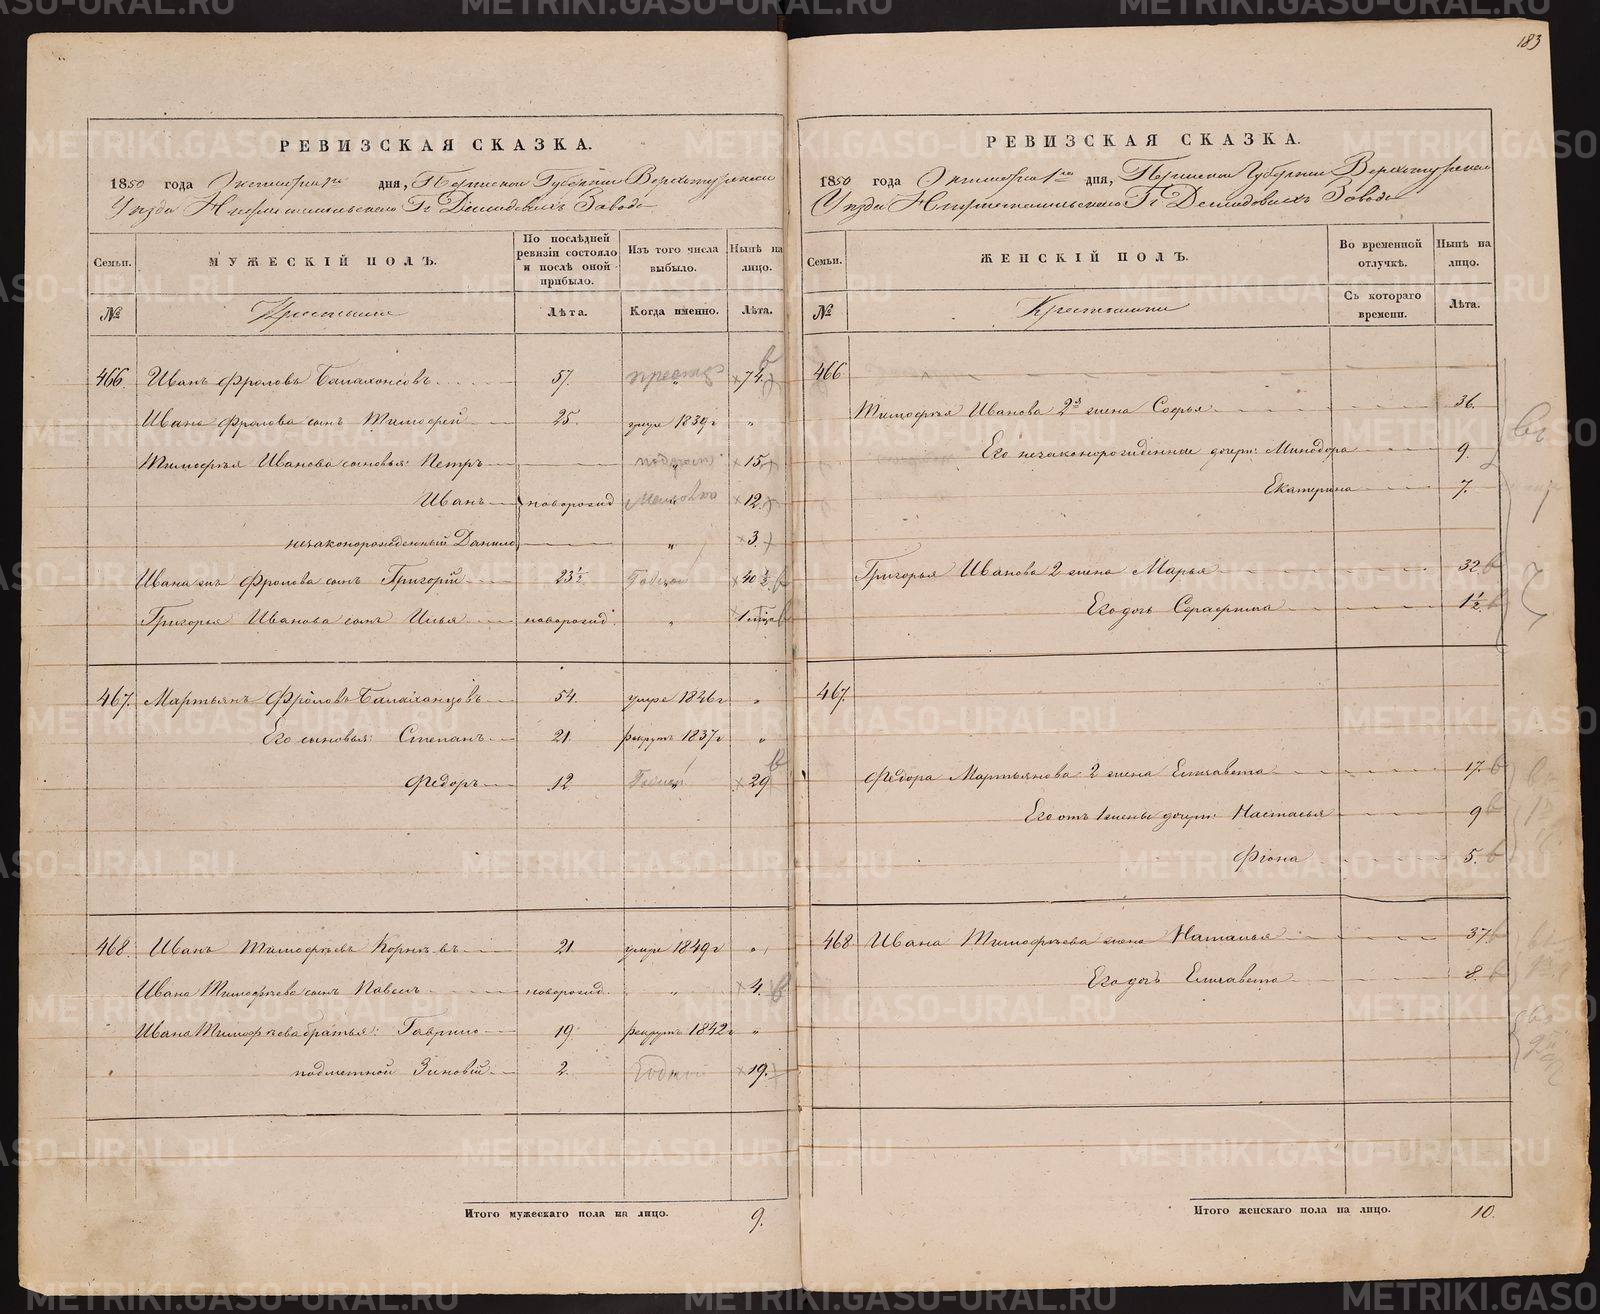 183
РЕВИЗСКАЯ СКАЗКА.
1850 года Октября 1го дня, Пермской Губерніи Верхотурскаго
Уѣзда Нижнетагильскаго Гг Демидовыхъ Завода
Семьи. МУЖЕСКІЙ ПОЛЪ. По послѣдней ревизіи состояло и послѣ оной прибыло. Изъ того числа выбыло. Нынѣ на лицо.
№ Крестьяне Лѣта. Когда именно. Лѣта.
466. Иванъ Фроловъ Балахонсовъ 57. престар „ 74.
Ивана Фролова сынъ Тимофей 25. умре 1839 г „
Тимофѣя Иванова сыновья: Петръ „ 15
Иванъ новорожд „ 12.
незаконорожденный Данило „ 3.
Ивана же Фролова сынъ Григорій 23½ Годный 40½
Григорья Иванова сынъ Илья новорожд „ 1 мѣс
467. Мартьянъ Фроловъ Балахонцовъ 54. умре 1846 г „
Его сыновья: Степанъ 21. рекрутъ 1837 г „
Федоръ 12 Годный „ 29
468. Иванъ Тимофѣевъ Корнѣвъ 21 умре 1849 г „
Ивана Тимофѣева сынъ Павелъ новорожд. „ 4.
Ивана Тимофѣева братья: Гаврило 19. рекрутъ 1842 г „
подметной Зиновій 2. Годный 19.
Итого мужескаго пола на лицо. 9.
РЕВИЗСКАЯ СКАЗКА.
1850 года Октября 1го дня, Пермской Губерніи Верхотурскаго
Уѣзда Нижнетагильскаго Гг Демидовыхъ Завода
Семьи. ЖЕНСКІЙ ПОЛЪ. Во временной отлучкѣ. Нынѣ на лицо.
№ Крестьянки Съ котораго времени. Лѣта.
466
Тимофѣя Иванова 2я жена Софья 36.
Его незаконорожденные дочери: Минодора 9.
Екатерина 7.
Григорья Иванова 2 жена Марья 32
Его дочь Серафима 1½
467.
Федора Мартьянова 2 жена Елизавета 17.
Его отъ 1 жены дочери: Настасья 9
Фіона 5.
468 Ивана Тимофѣева жена Наталья 37.
Его дочь Елизавета 8.
Итого женскаго пола на лицо. 10.
METRIKI.GASO-URAL.RU